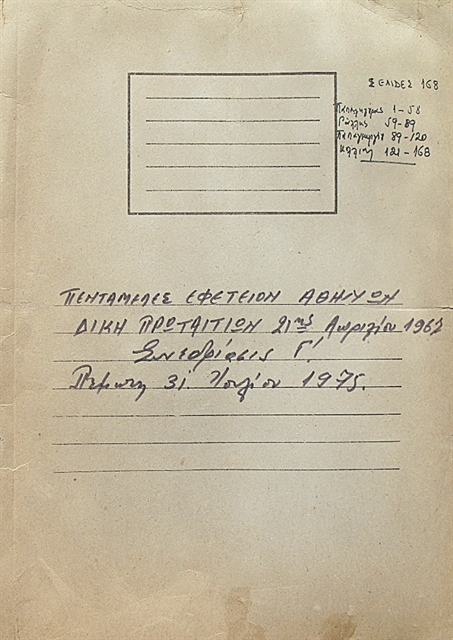 ΣΕΛΙΔΕΣ 168
1-58
Ράλλης 59-89
89-120
121-168
ΠΕΝΤΑΜΕΛΕΣ ΕΦΕΤΕΙΟΝ ΑΘΗΝΩΝ
ΔΙΚΗ ΠΡΩΤΑΙΤΙΩΝ 21ης Απριλίου 1967
Συνεδρίασις Γ'.
Πέμπτη 31 Ιουλίου 1975.